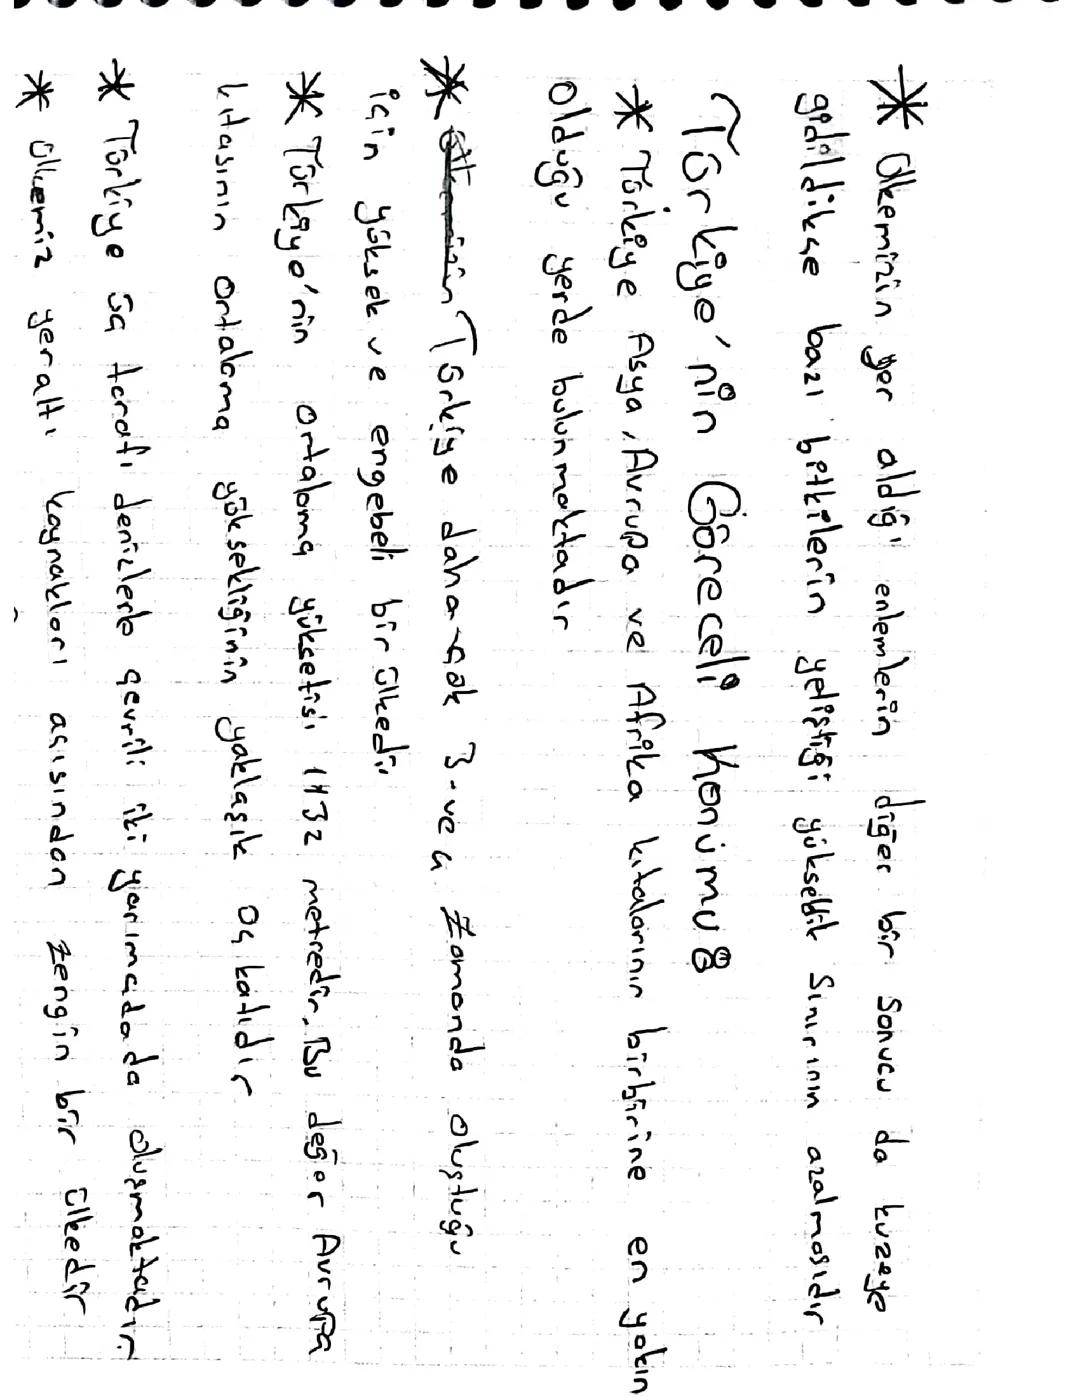 * Ülkemizin yer aldığı enlemlerin diğer bir sonucu da kuzeye
gidildikçe bazı bitkilerin yetiştiği yükseltik sınırının azalmasıdır
Türkiye'nin Göreceli Konumu:
* Türkiye Asya, Avrupa ve Afrika kıtalarının birbirine en yakın
olduğu yerde bulunmaktadır
* Türkiye daha çok 3. ve 4. Zamanda oluştuğu
için yüksek ve engebeli bir ülkedir
* Türkiye'nin ortalama yüksetisi 1132 metredir. Bu değer Avrupa
kıtasının ortalama yüksekliğinin yaklaşık üç katıdır
* Türkiye üç tarafı denizlerle çevrili iki yarımadada oluşmaktadır.
* Ülkemiz yeraltı kaynakları açısından zengin bir ülkedir